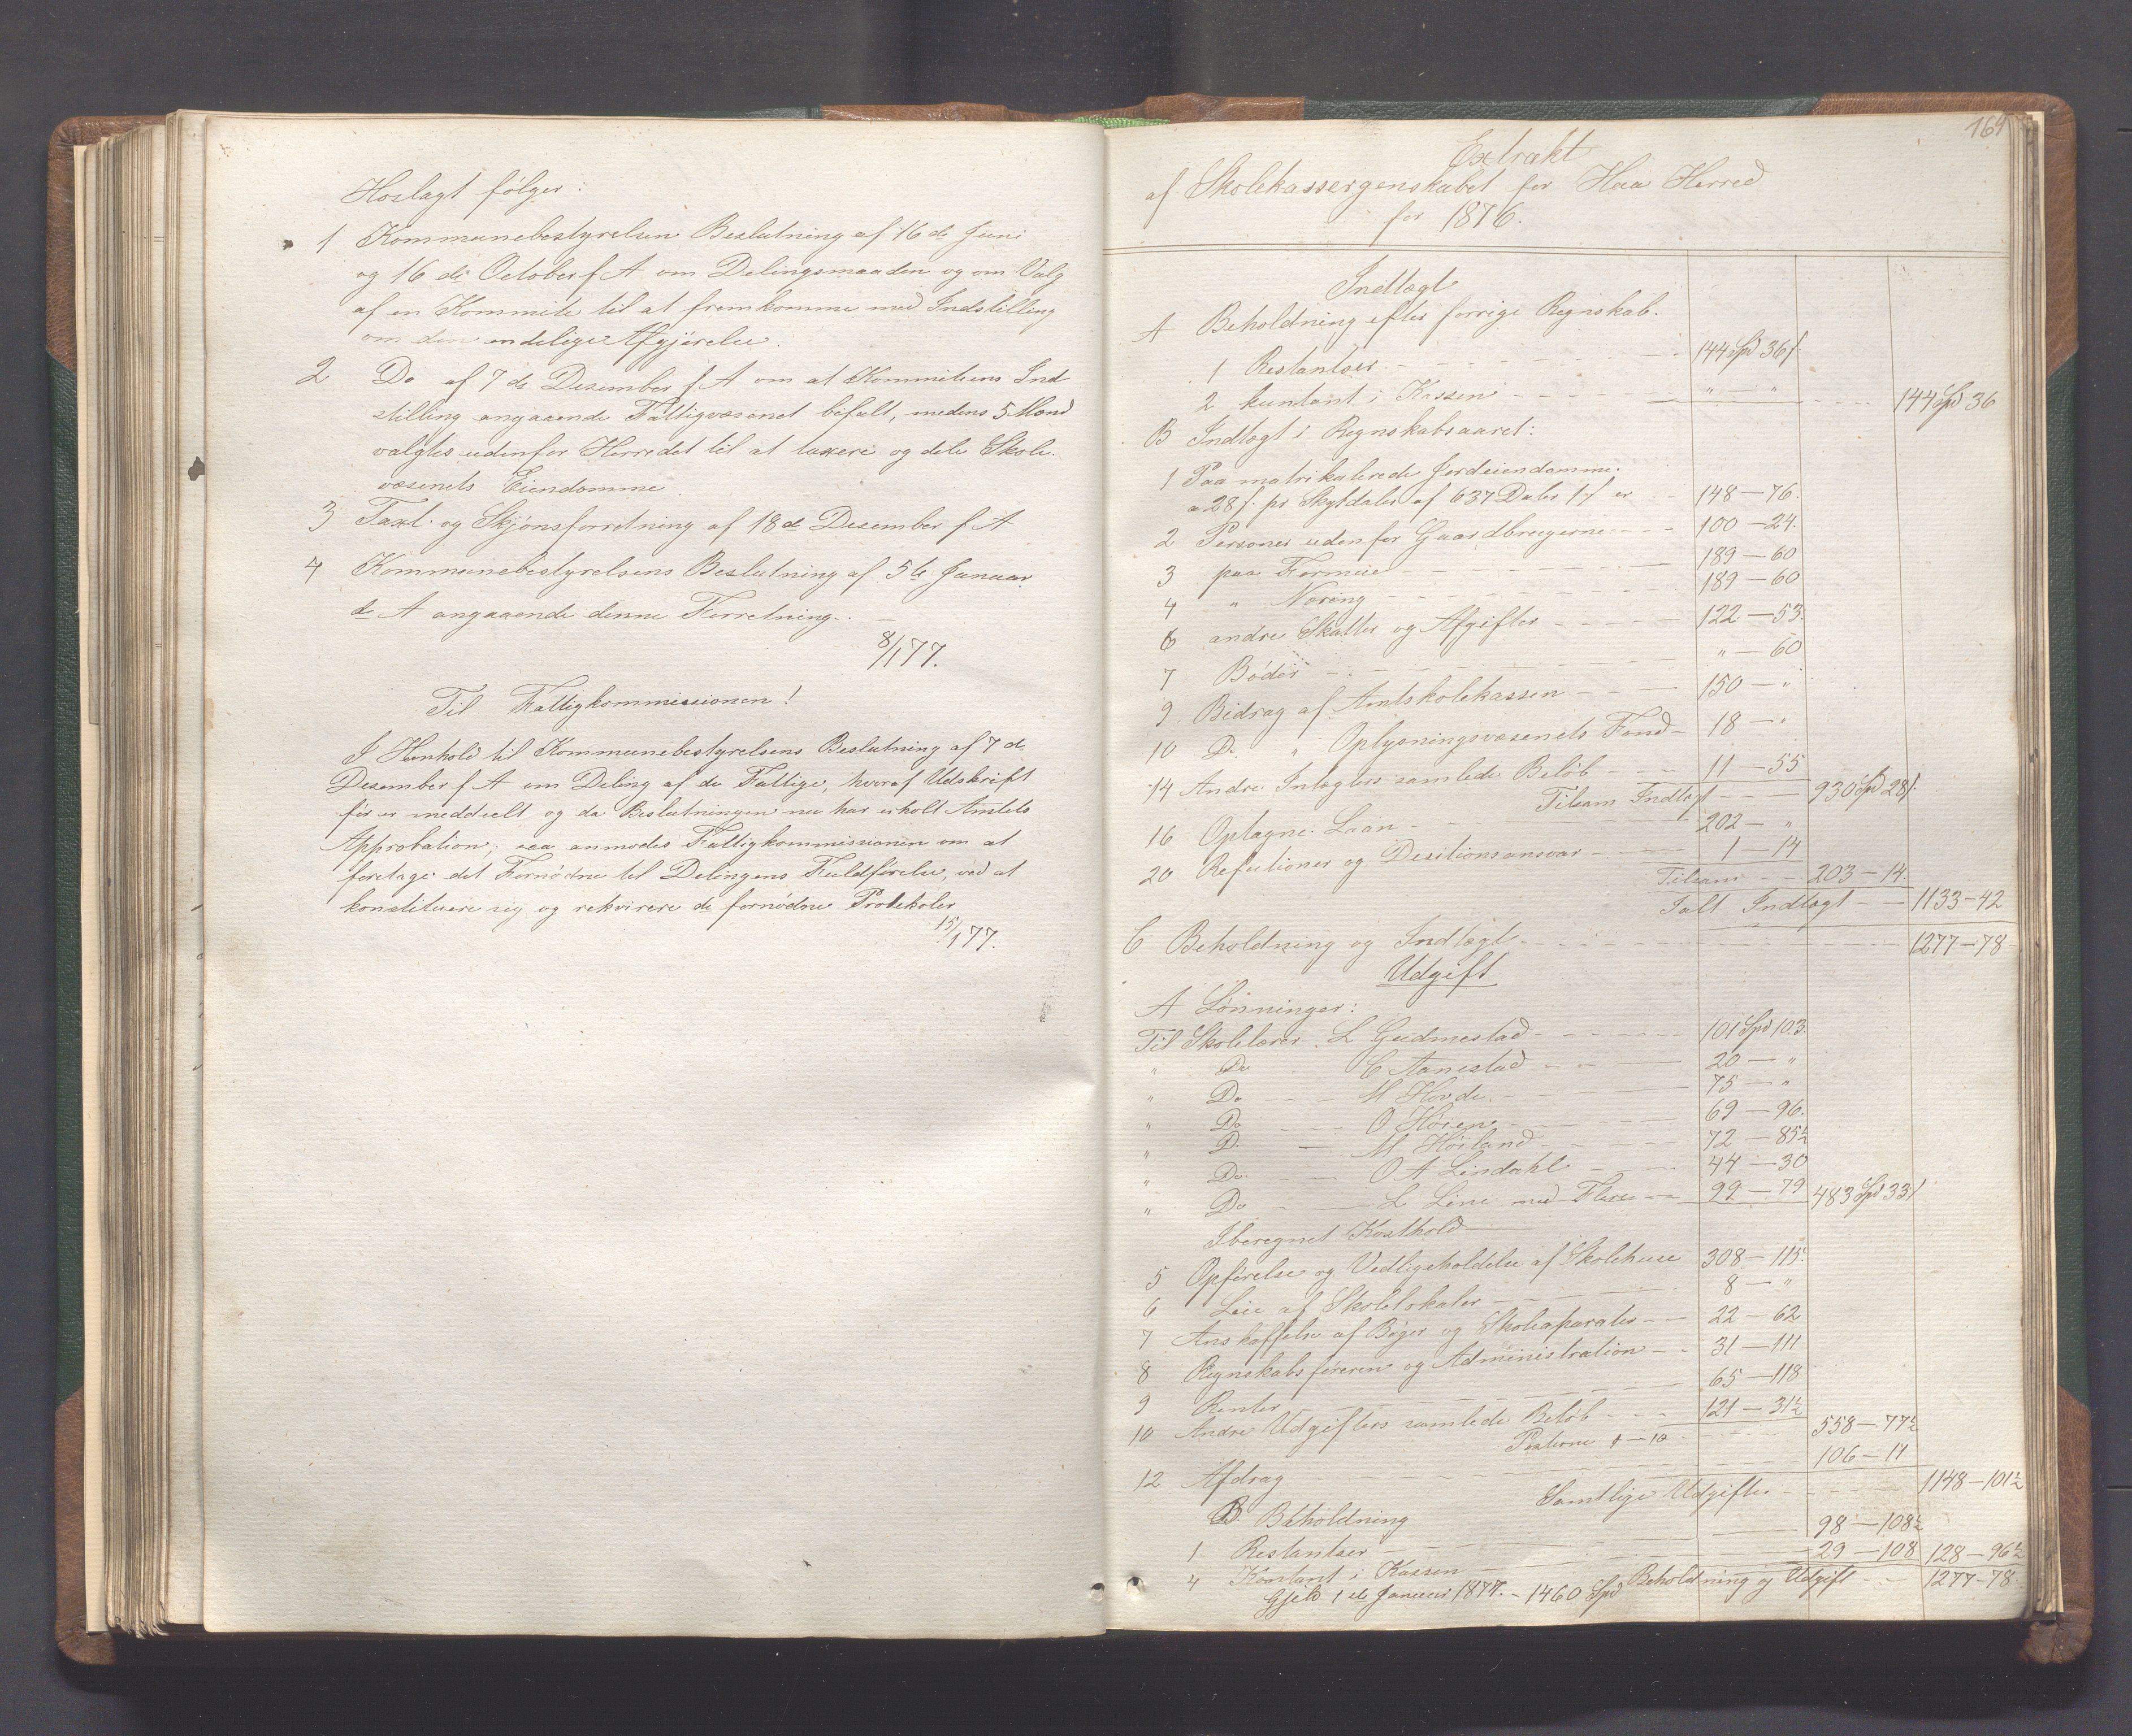 Hoslagt følger:
1 Kommunebestyrelsen Beslutning af 16 de Juni
og 16 de October f A om Delingsmaaden og om Valg
af en Kommite til at fremkomme med Indstilling
om den endelige Afgjørelse.
2 Do af 7 de Desember f A om at Kommiteens Ind
stilling angaaende Fattigvæsenet befalt, medens 5 Mænd
valgtes udenfor Herredet til at taxere og dele Skole.
væsenets Eiendomme
3 Taxt. og Skjønsforretning af 18 de Desember f A
4 Kommunebestyrelsens Beslutning af 5te Januar
d A angaaende denne Forretning.
8/1 77.
Til Fattigkommissionen!
I Henhold til Kommunebestyrelsens Beslutning af 7 de
Desember f A om Deling af de Fattige, hvoraf Udskrift
før er meddeelt og da Beslutningen nu har erholt Amtets
Approbation; saa anmodes Fattigkommissionen om at
foretage det Fornødne til Delingens Fuldførelse, ved at
konstituere sig og rekvirere de fornødne Protokoler
15/1 77.
164
Extrakt
af Skolekasseregnskabet for Haa Herred
for 1876.
Indtægt
A Beholdning efter forrige Regnskab.
1 Restantser - - - 144 Spd 36 f
2 kuntant i Kassen - - - " — " - - - 144 Spd 36
B Indtægt i Regnskabsaaret:
1 Paa matrikulerede Jordeiendomme.
a 28 f. pr Skyldaler af 637 Daler 1 f er - - 148 — 76.
2 Personer udenfor Gaardbrugerne - - - 100 — 24.
3 paa Formue - - - 189 — 60
4 " Næring - - - 189 — 60
6 andre Skatter og Afgifter - - - 122 — 53.
7 Bøder - - - " — 60
9 Bidrag af Amtskolekassen - - - 150 — "
10 Do " Oplysningsvæsenets Fond - 18 — "
14 Andre Intægters samlede Beløb - - - 11 — 55
Tilsam Indtægt - - - 930 Spd 28 f.
16 Optagne Laan - - - 202 — "
20 Refutioner og Desitionsansvar - - - 1 — 14
Tilsam - - 203 — 14.
Talt Indtægt - - 1133 — 42
C Beholdning og Indtægt - - - 1277 — 78
Udgift
A Lønninger:
Til Skolelærer L Gudmestad - - - 101 Spd 103.
" Do C Aanestad - - - 20 — "
" Do - - - M Hovde - - - 75 — "
" Do - - - O Høien - - - 69 — 96.
" D. - - - M Høiland - - - 72 — 85½
" Do - - - O A Lindahl - - - 44 — 30
" Do - - - L Line med Flere - - 99 — 79 483 Spd 33 f
Iberegnet Kosthold
5 Opførelse og Vedligeholdelse af Skolehuse 308 — 115.
6 Leie af Skolelokaler - - - 8 — "
7 Anskaffelse af Bøger og Skoleaparater - - 22 — 62
8 Regnskabsføreren og Administration - - 31 — 111
9 Renter - - - 65 — 118
10 Andre Udgifters samlede Beløb - - - 121 — 31½
Posterne — 10 - - - 558 — 77½
12 Afdrag - - - 106 — 11
Samtlige Udgifter - - - 1148 — 101½
B. Beholdning
1 Restantser - - - 98 — 108½
4 Kontant i Kassen - - - 29 — 108 128 — 96½
Beholdning og Udgift - - 1277 — 78.
Gjeld 1 ste Januar 1877. - 1460 Spd